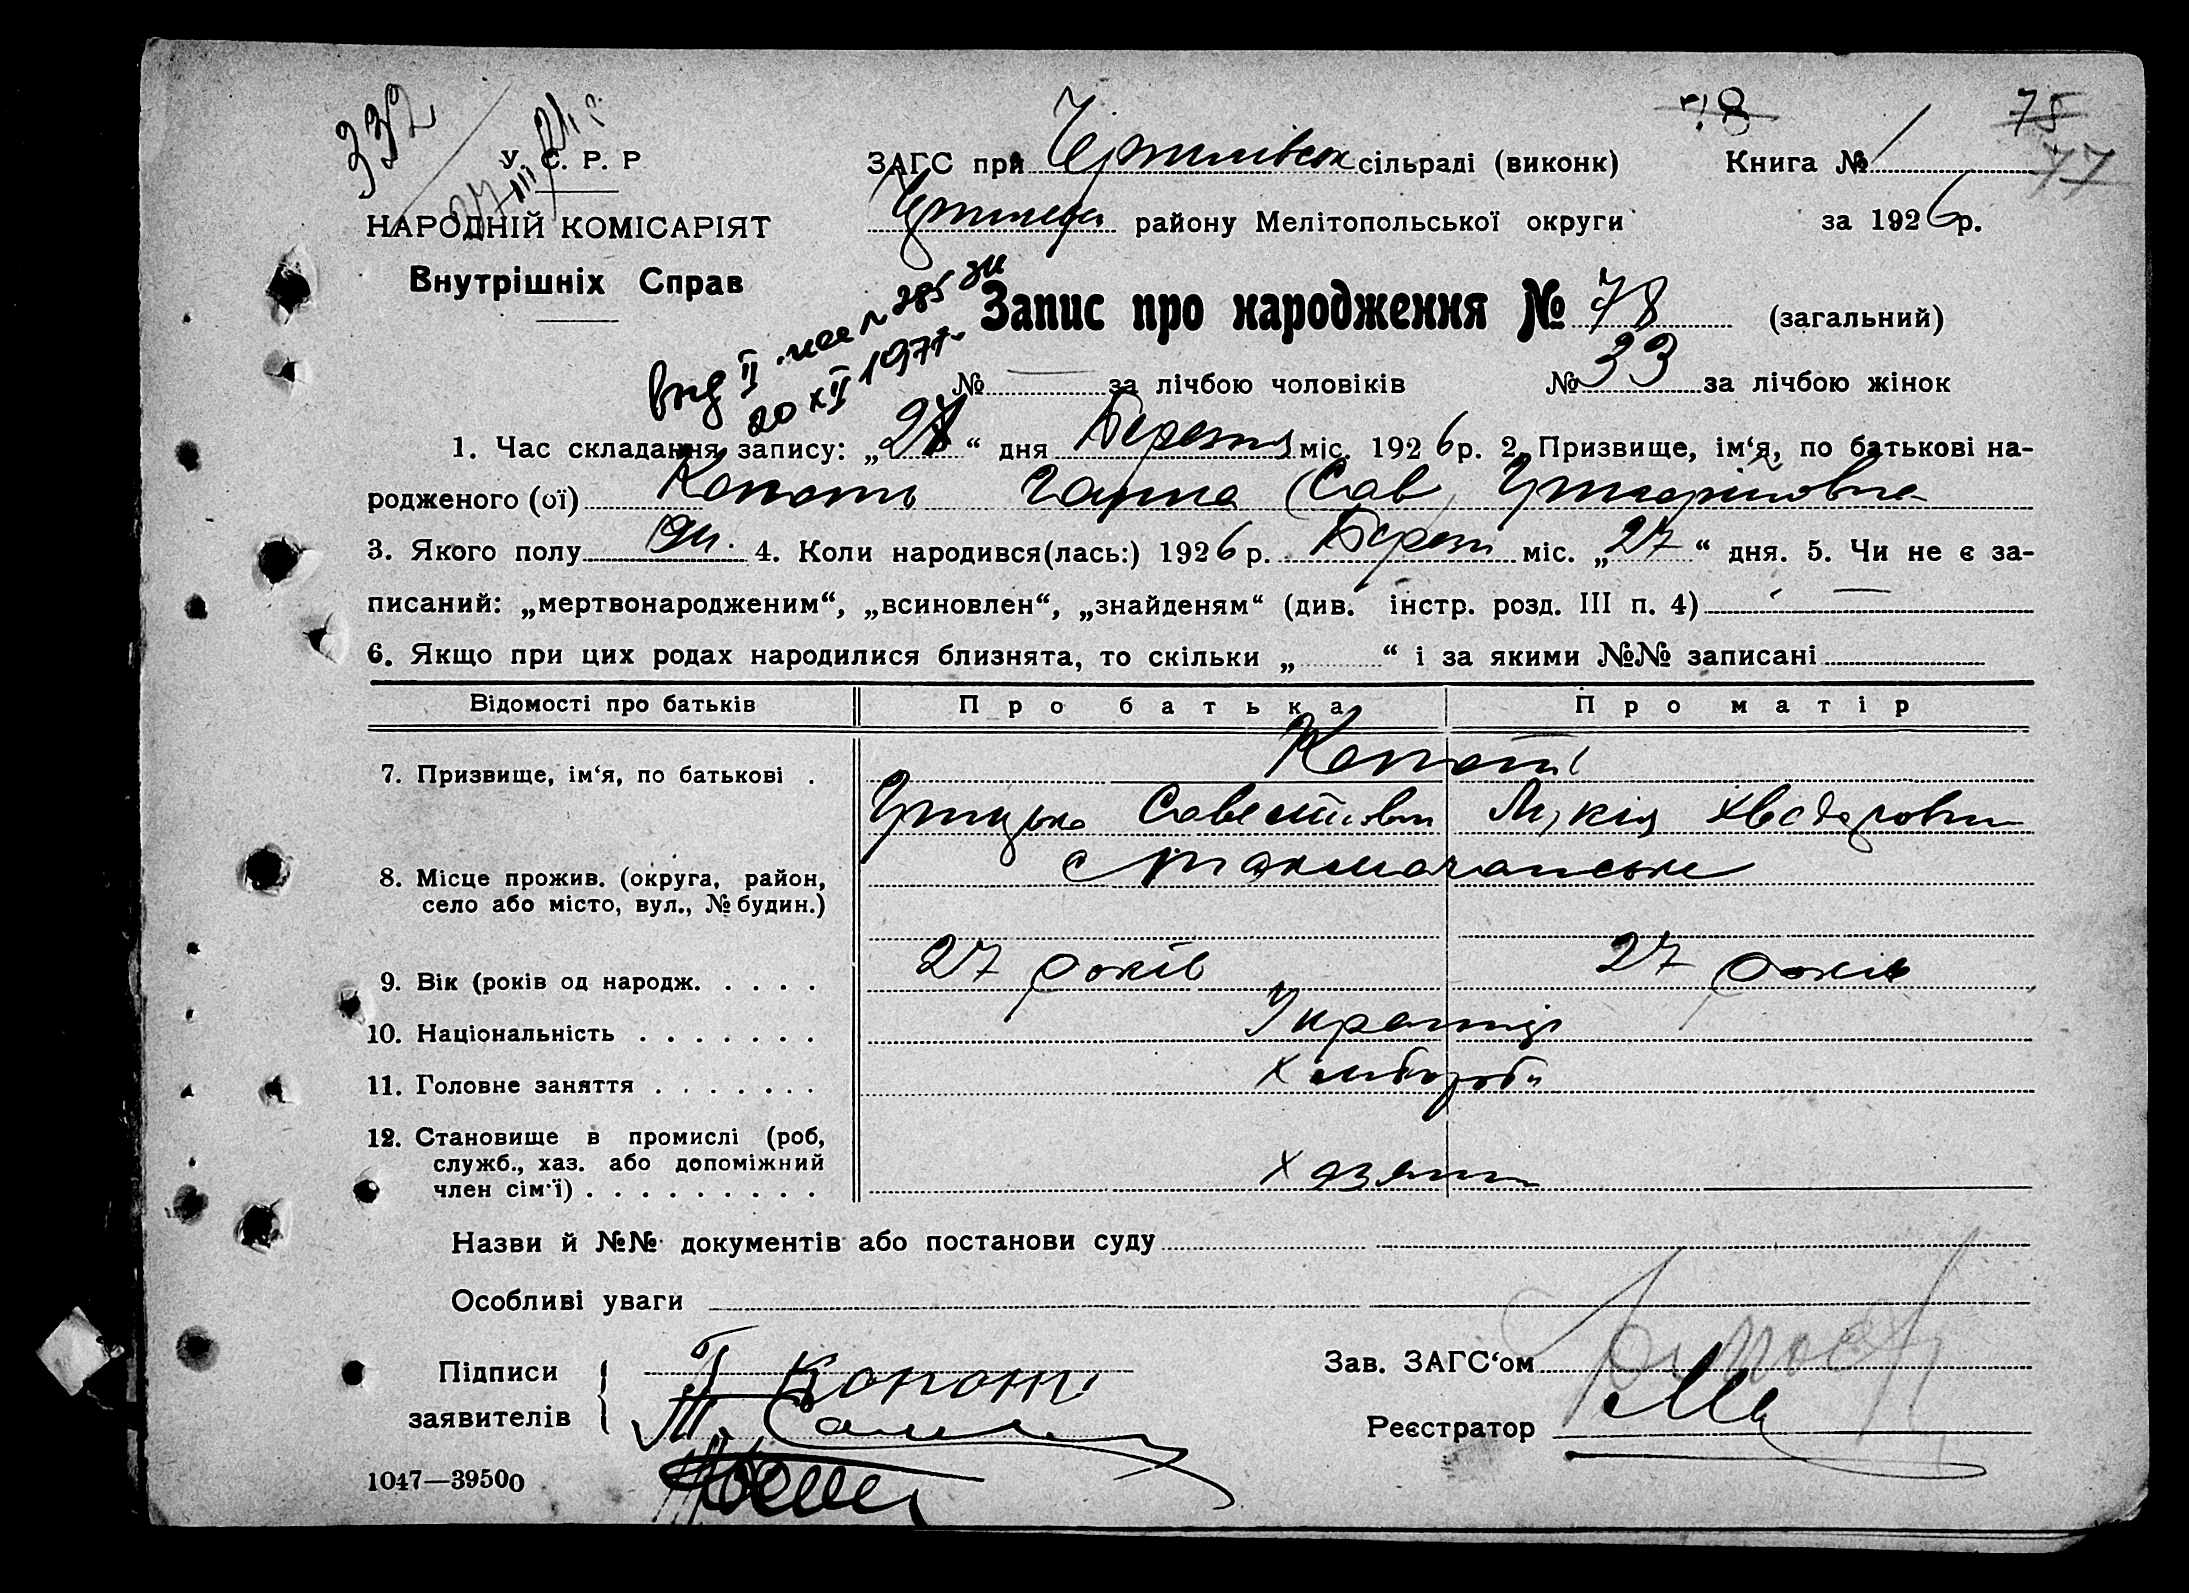 332
У. С. Р. Р
НАРОДНІЙ КОМІСАРІЯТ
Внутрішніх Справ
78
75
77
ЗАГС при сільраді (виконк) Книга № 1
району Мелітопольської округи за 1926 р.
Запис про народження № 78 (загальний)
вид II 385
20 XII 1977
№ — за лічбою чоловіків № 33 за лічбою жінок
1. Час складання запису: „28“ дня Березня міс. 1926 р. 2. Призвище, ім‘я, по батькові на-
родженого (ої) Копоть Ганна (Сав
3. Якого полу жи. 4. Коли народився(лась:) 1926 р. Берез міс. „27“ дня. 5. Чи не є за-
писаний: „мертвонародженим“, „всиновлен“, „знайденям“ (див. інстр. розд. III п. 4) —
6. Якщо при цих родах народилися близнята, то скільки „ “ і за якими №№ записані
Відомості про батьків Про батька Про матір
7. Призвище, ім‘я, по батькові . Копоті
Хведоровна
8. Місце прожив. (округа, район,
село або місто, вул., № будин.)
9. Вік (років од народж. . . . . 27 років 27 років
10. Національність . . . . . . . Українці
11. Головне заняття . . . . . . . Хлібороби
12. Становище в промислі (роб,
служб., хаз. або допоміжний
член сім‘ї) . . . . . . . . . Хазяїни
Назви й №№ документів або постанови суду
Особливі уваги
Підписи Г Копоть Зав. ЗАГС‘ом
заявителів Реєстратор
1047—39500